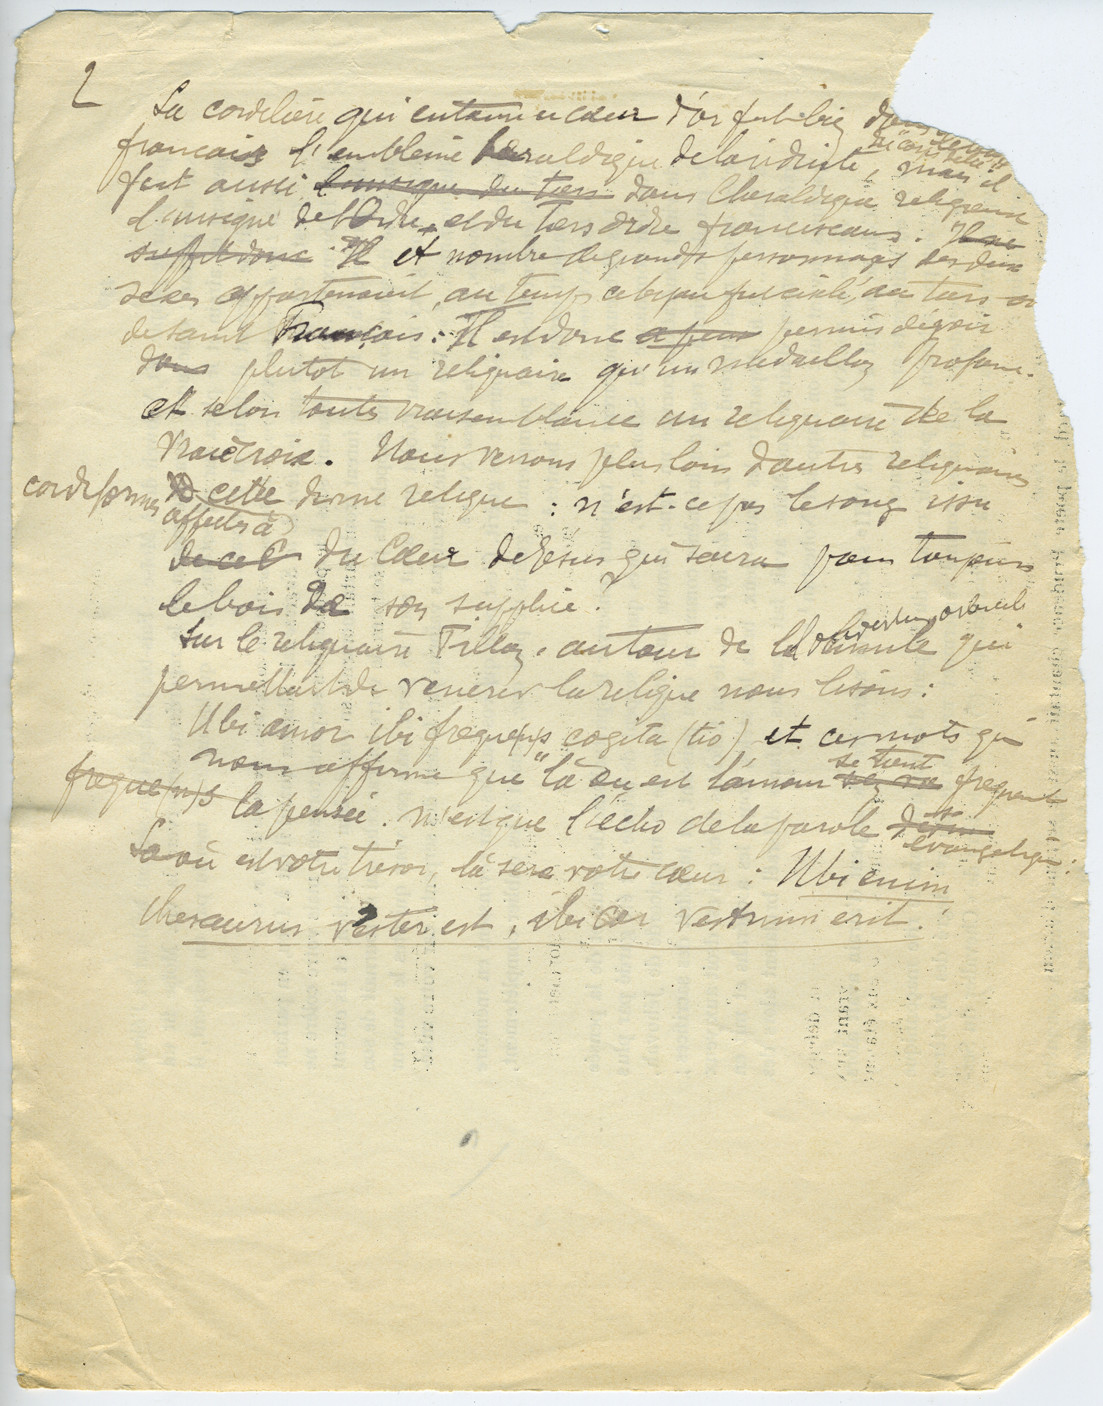 2
La cordelière qui entoure ce cœur d'or fut bien dans
français l'emblème héraldique de la viduité, mais il
fut aussi l'insigne du tiers dans l'héraldique religieuse
l'insigne de l'Ordre et du tiers ordre franciscains. Il ne
suffit donc Il et nombre de grands personnages des deux
sexes appartenaient, au temps ce bijou fut ciselé, au tiers-or
de saint François : Il est donc a peu permis de voir
dans plutôt un reliquaire qu'un médaillon profane.
et selon toute vraisemblance un reliquaire de la
Vraie Croix. Nous verrons plus loin d'autres reliquaires
cordiformes cette divine relique : n'est-ce pas le sang issu
affectés à
de ce C du Cœur de Jésus qui sacra pour toujours
le bois de son supplice ?
Sur le reliquaire Tilloy, autour de la qui
permettait de vénérer la relique nous lisons :
Ubi amor ibi freque(n)s cogita(tio) et ces mots qui
nous affirme que "là où est l'amour se tient
se va fréquente
freque(n)s la pensée. n'est que l'écho de la parole
évangélique :
Là où est votre trésor, là sera votre cœur : Ubi enim
thesaurus vester est, ibi cor vestrum erit.